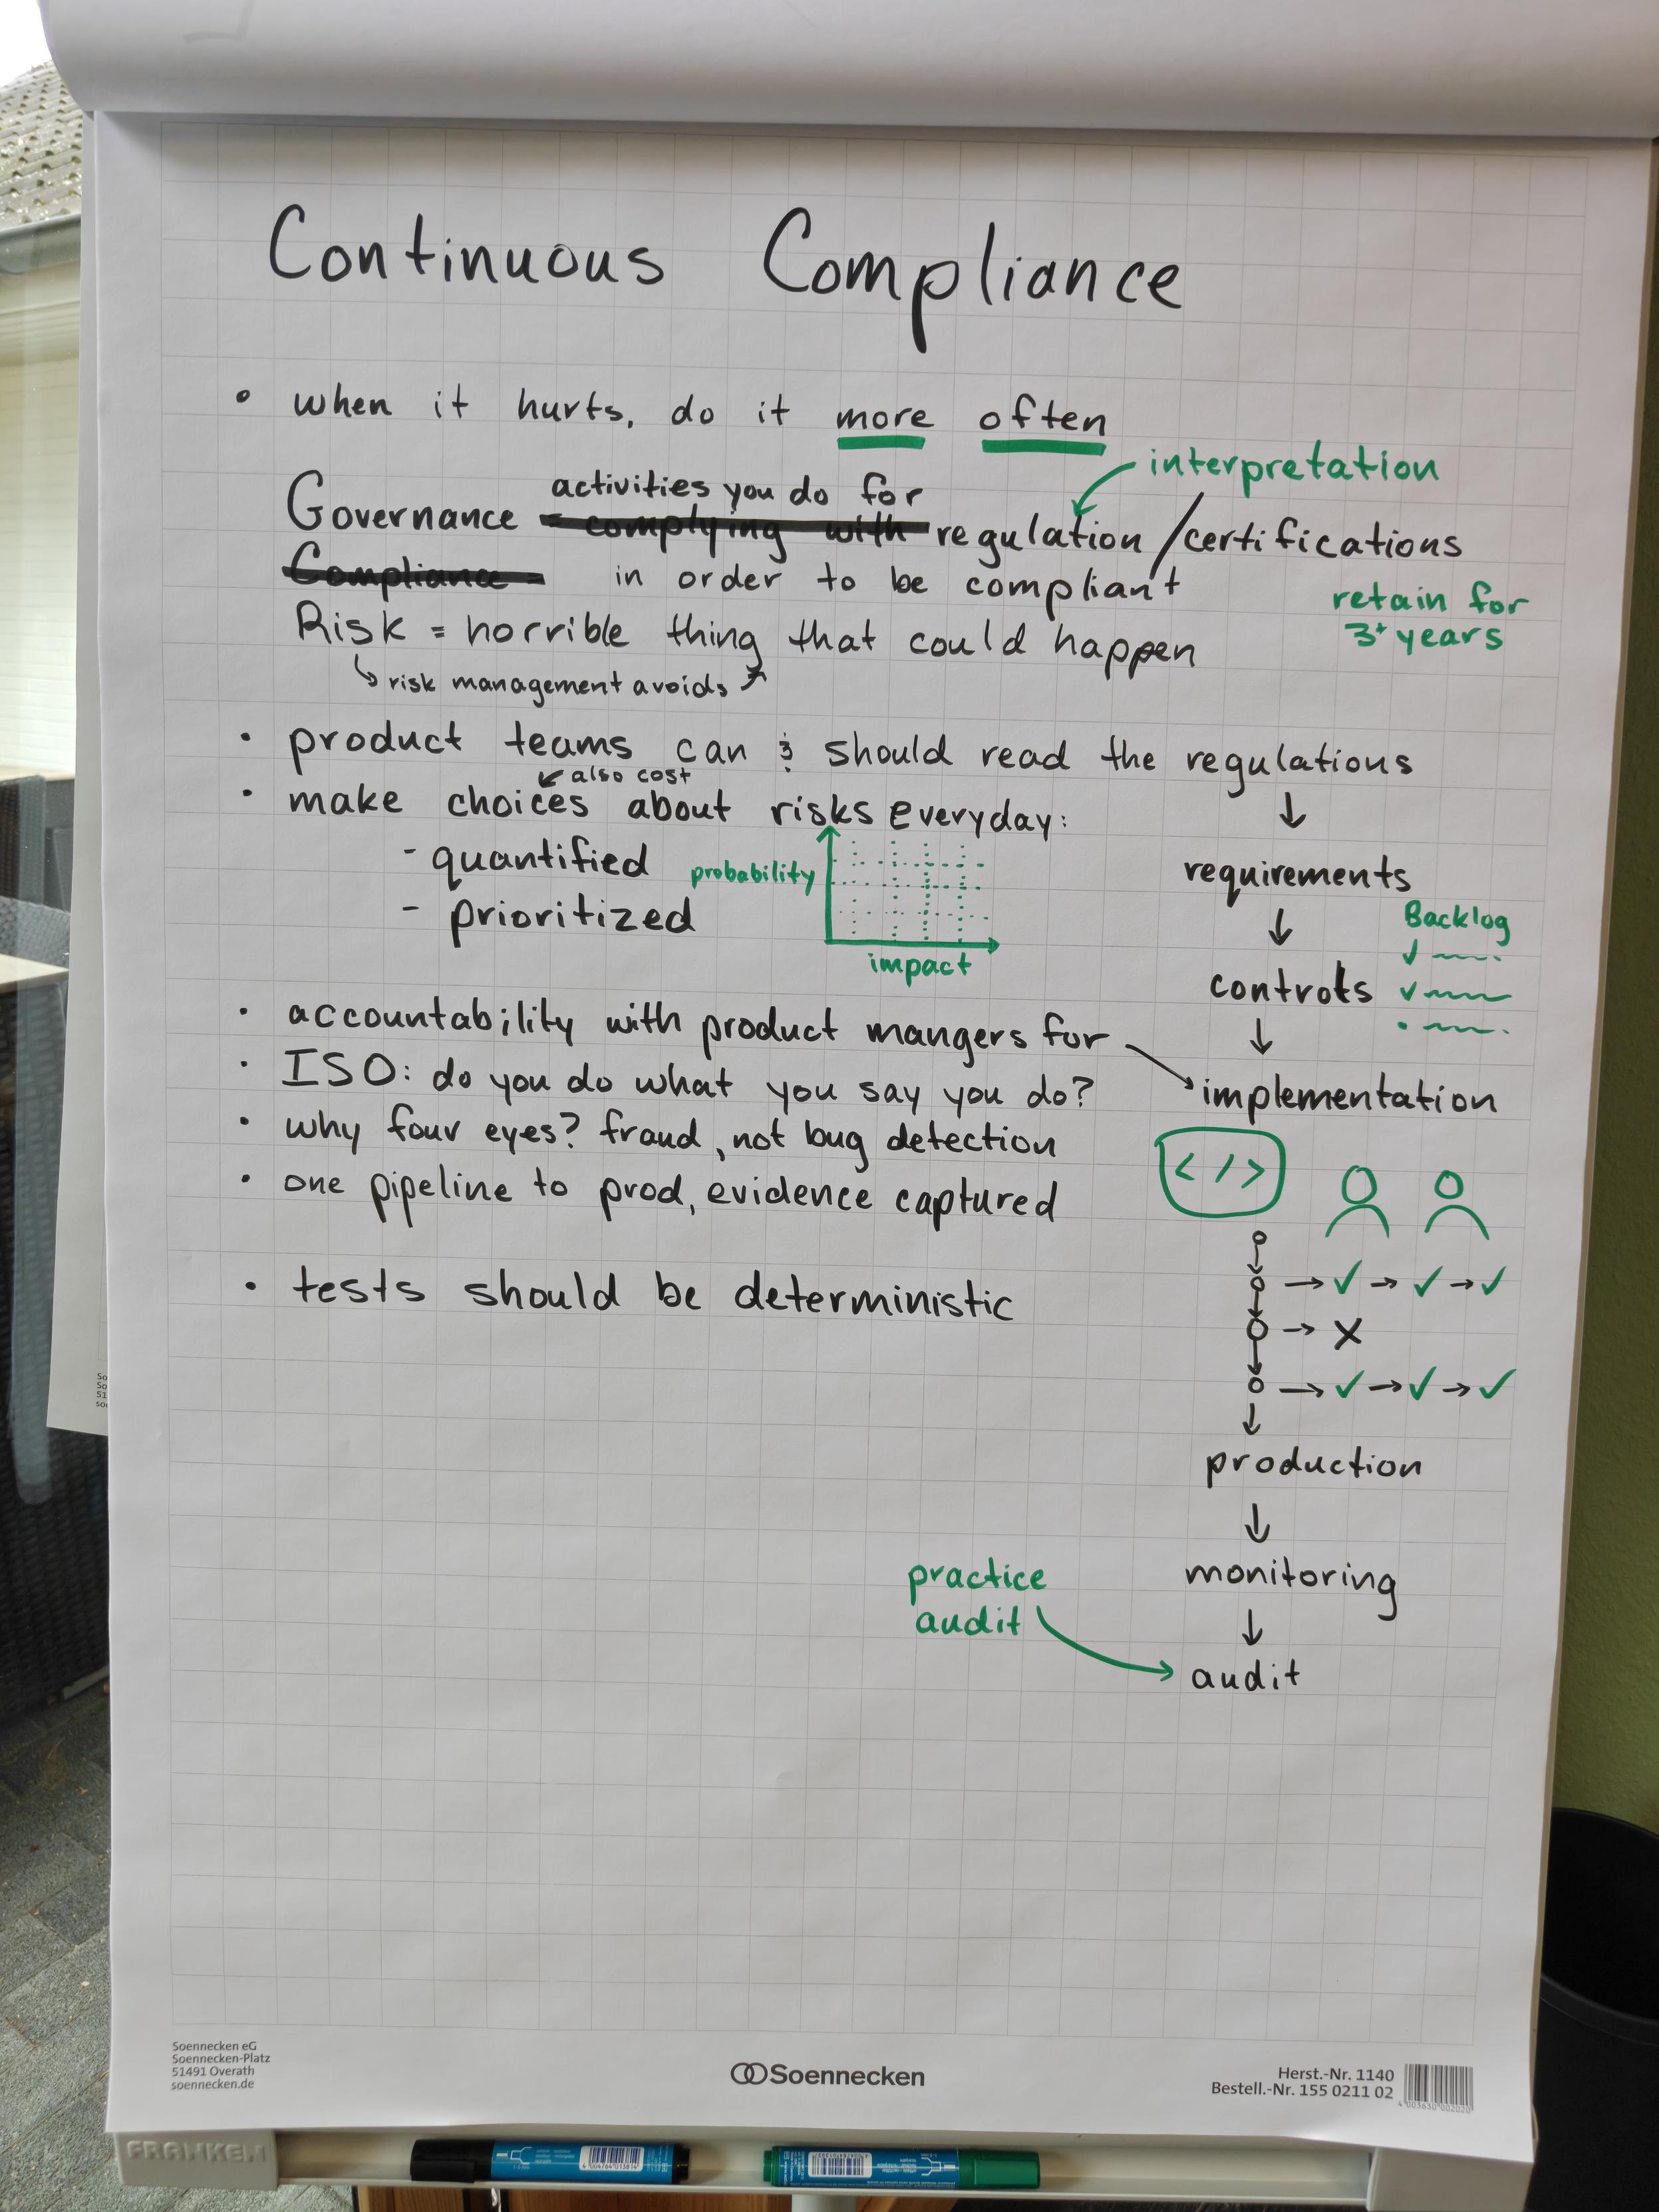 Continuous Compliance
• when it hurts, do it more often
interpretation
activities you do for
Governance = complying with regulation / certifications
Compliance = in order to be compliant
retain for
3+ years
Risk = horrible thing that could happen
↳ risk management avoids ↗
• product teams can & should read the regulations
↙ also cost
• make choices about risks everyday:
- quantified
- prioritized
probability
impact
↓
requirements
↓
Backlog
controls
↓
• accountability with product mangers for
implementation
• ISO: do you do what you say you do?
• why four eyes? fraud, not bug detection
• one pipeline to prod, evidence captured
< / >
• tests should be deterministic
→ ✓ → ✓ → ✓
→ X
→ ✓ → ✓ → ✓
↓
production
↓
monitoring
↓
practice
audit
audit
Soennecken eG
Soennecken-Platz
51491 Overath
soennecken.de
Soennecken
Herst.-Nr. 1140
Bestell.-Nr. 155 0211 02
4 003630 002020
FRANKEN